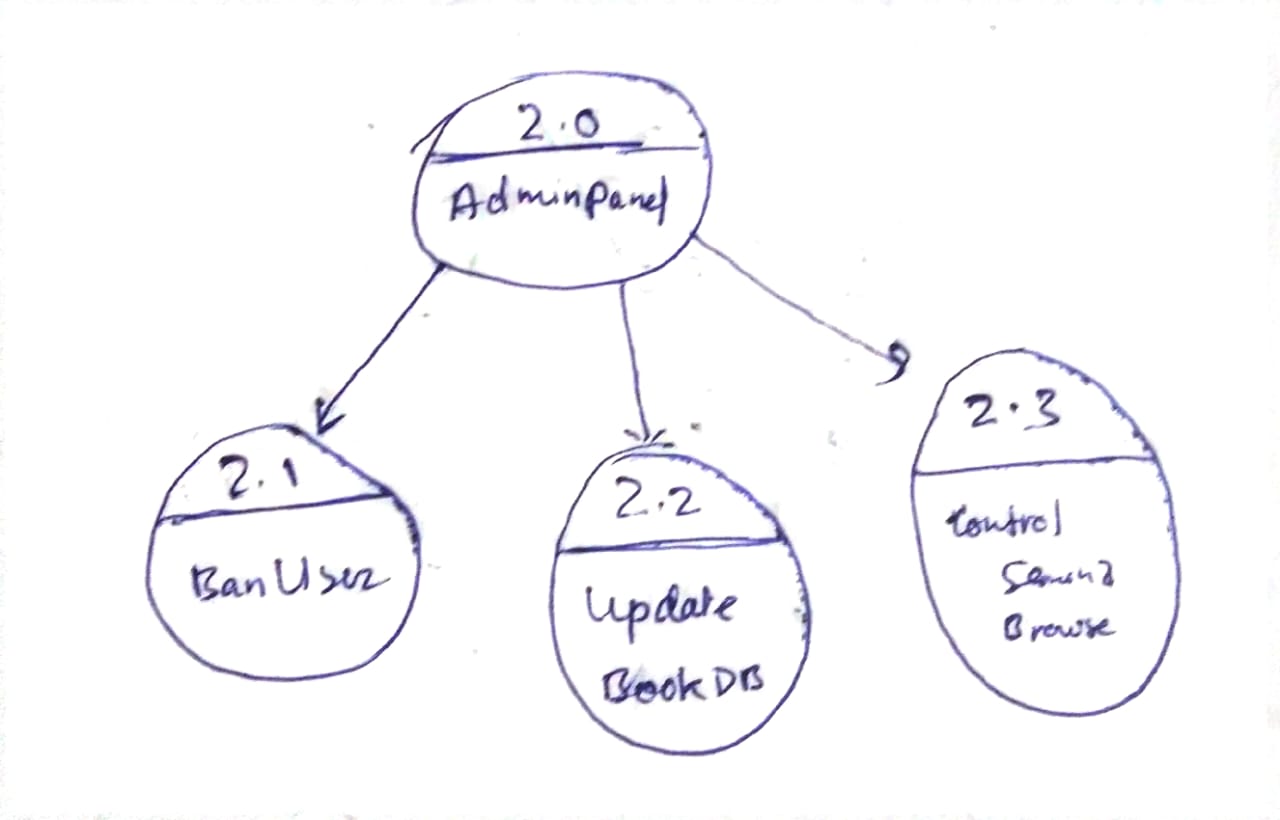 2.0
AdminPanel
2.1
BanUser
2.2
Update
BookDB
2.3
Control
Browse